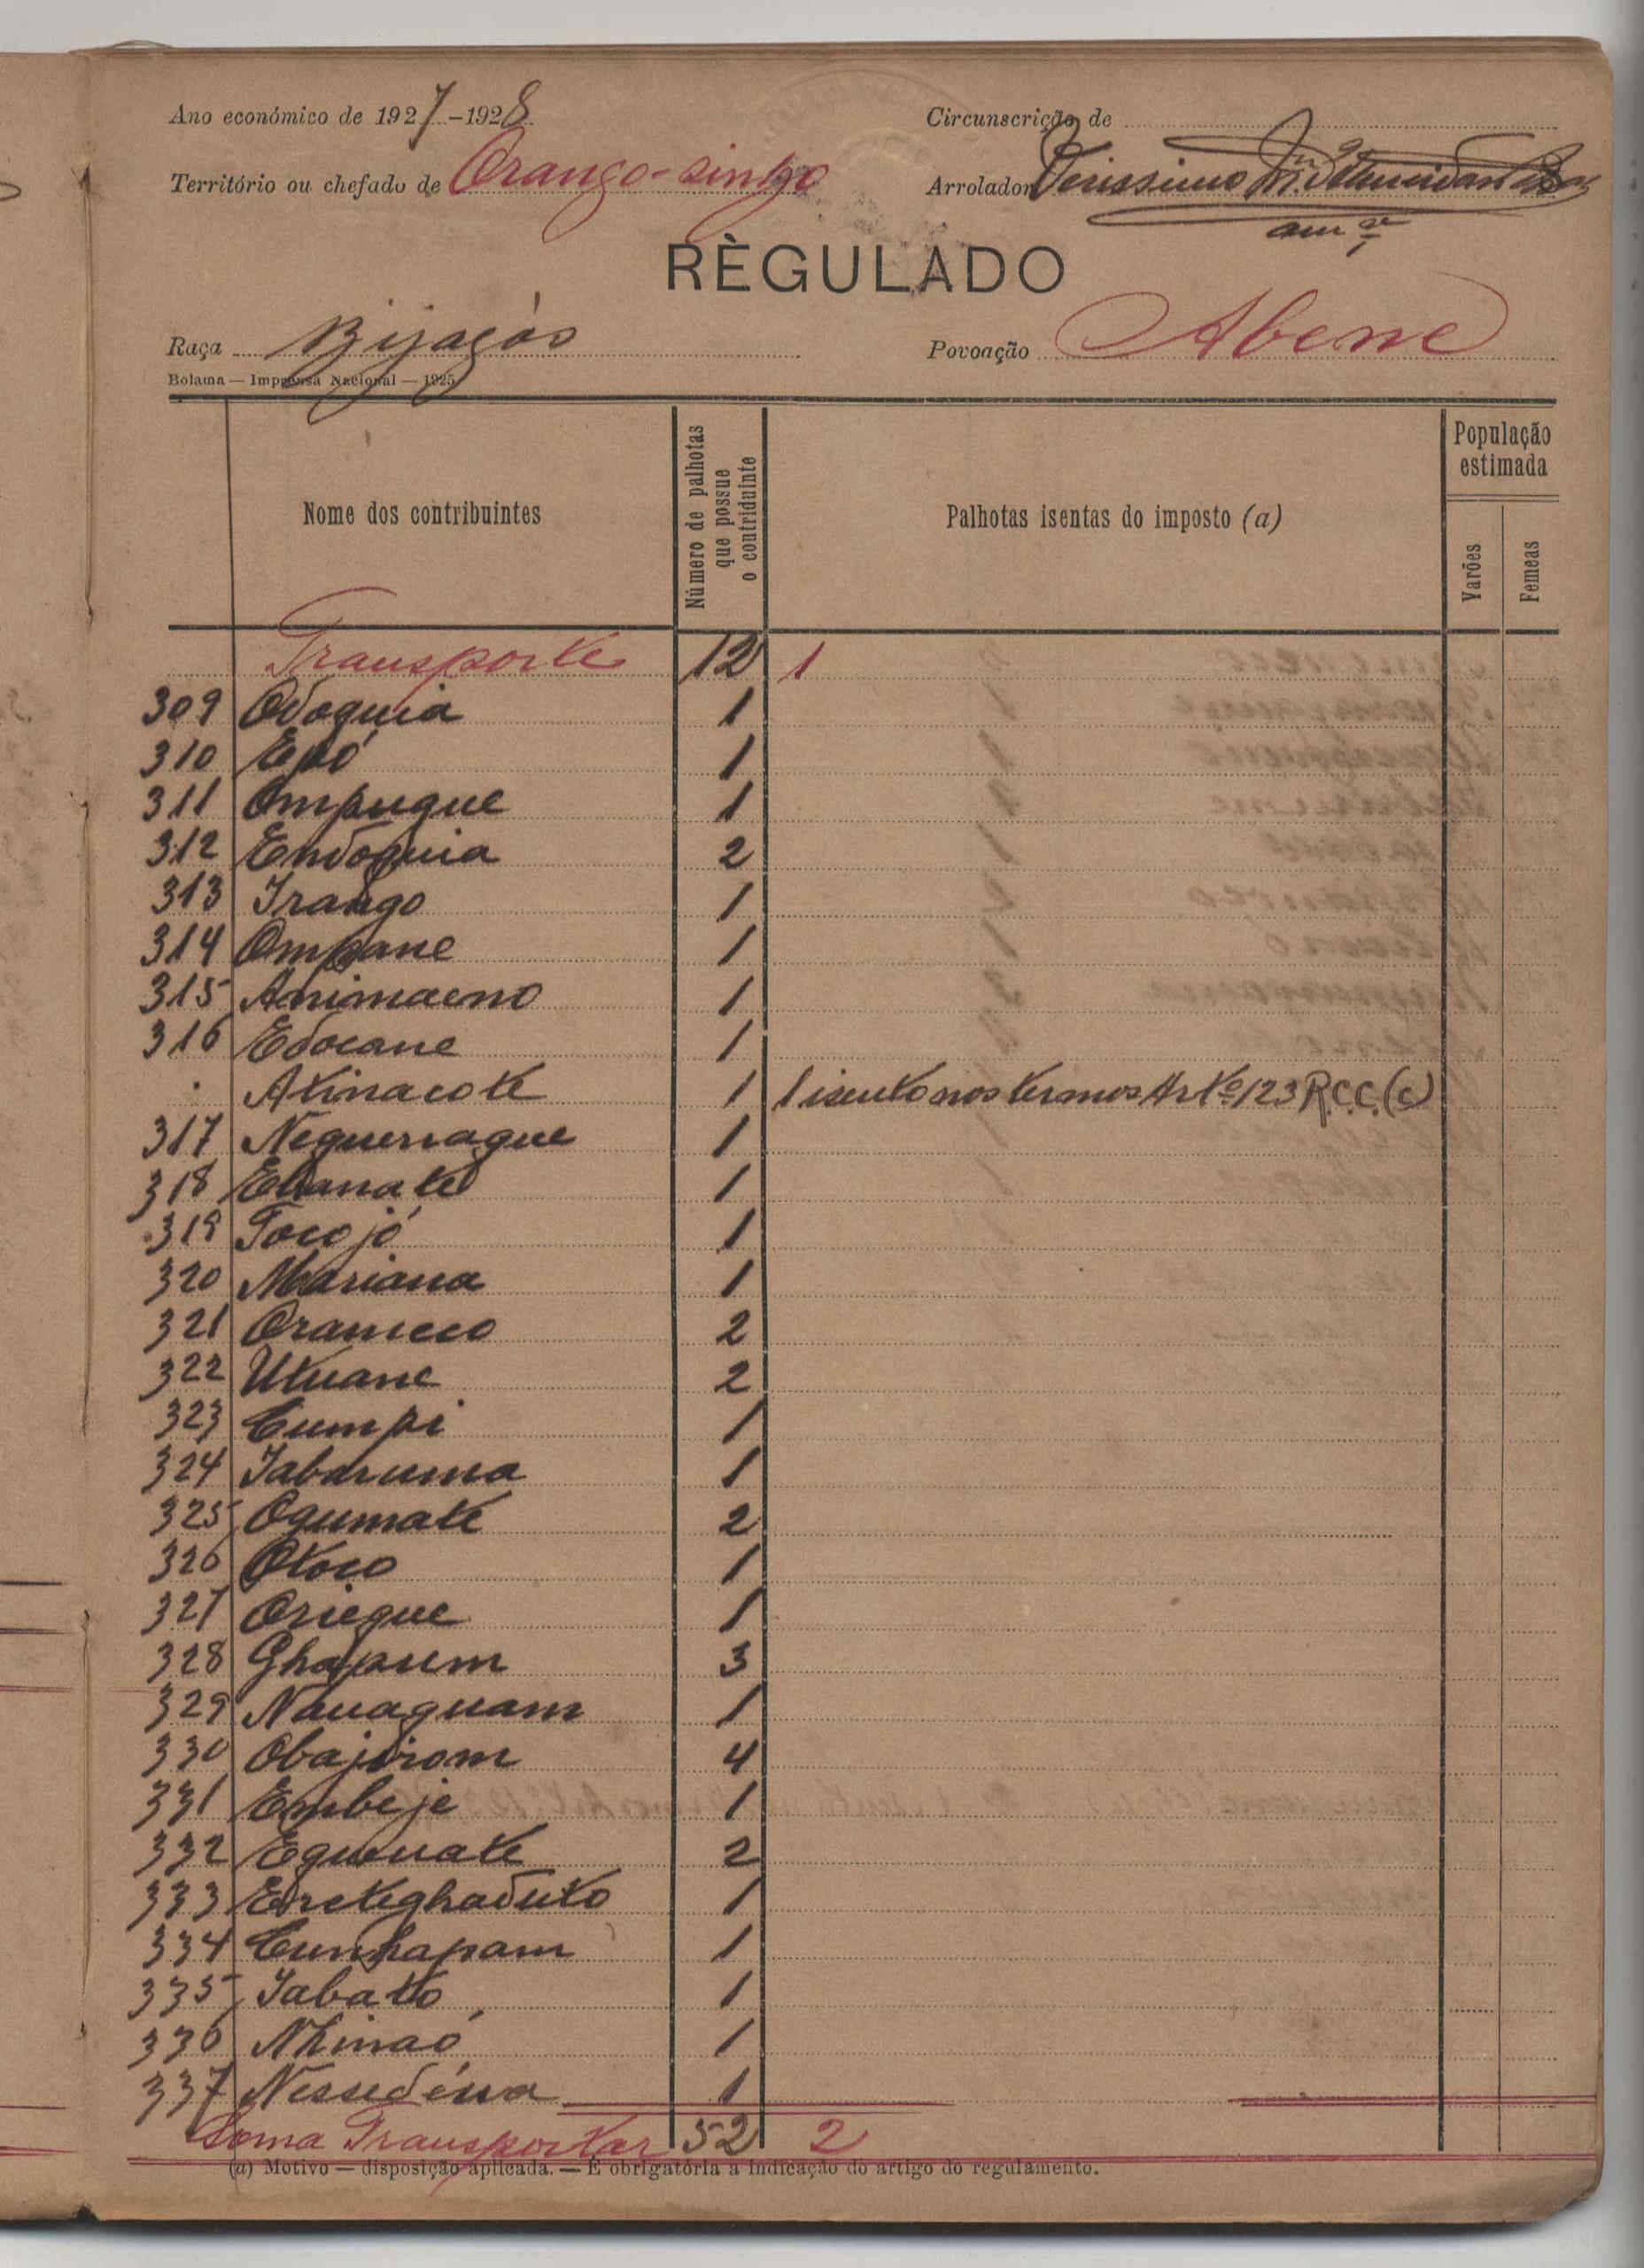 Ano económico de 1927-1928
Circunscrição de
Território ou chefado de Orango-singo
Arrolador Verissimo
RÈGULADO
Raça Bijagós
Povoação Abene
Bolama — Imprensa Nacional — 1925
Nome dos contribuintes
Número de palhotas que possue o contriduinte
Palhotas isentas do imposto (a)
População estimada
Varões
Femeas
Transporte 12 1
309 Odoquia 1
310 Epó 1
311 Ompugue 1
312 Endoquia 2
313 Irango 1
314 Ompane 1
315 Animaeno 1
316 Edocane 1
Atinacote 1 1 isento nos termos Artº 123 R.C.C. (c)
317 Neguenague 1
318 Ebanate 1
319 Tocojó 1
320 Mariana 1
321 Orameco 2
322 Utuane 2
323 Cumpi 1
324 Iabaruma 1
325 Ogumate 2
326 Otoco 1
327 Oriegue 1
328 Ghapum 3
329 Nauaguam 1
330 Obajirom 4
331 Embeje 1
332 Egumate 2
333 Ereteghaduto 1
334 Cunhapam 1
335 Iabato 1
336 Nhinaó 1
337 Nessedéma 1
Soma Transportar 52 2
(a) Motivo — disposição aplicada. — É obrigatória a indicação do artigo do regulamento.